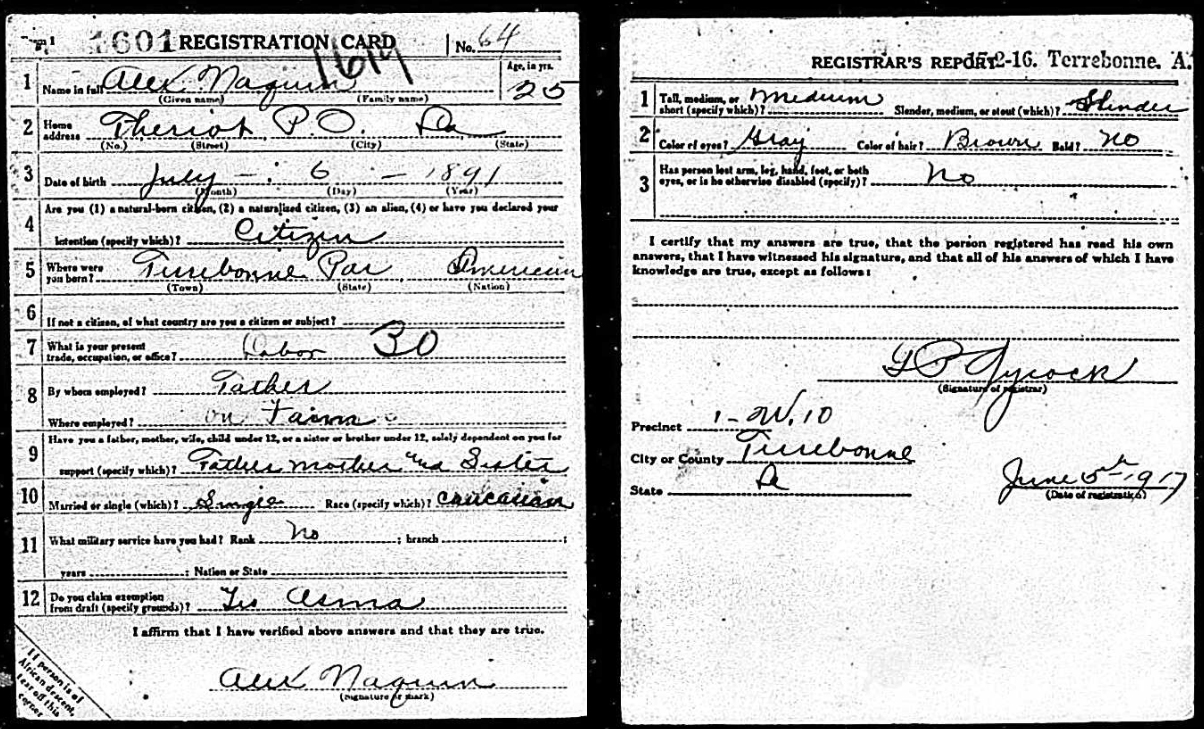 Form 1 1601 REGISTRATION CARD No. 64
1619
1 Name in full Alex Naquin Age, in yrs. 25
(Given name) (Family name)
2 Home address Theriot P.O. La
(No.) (Street) (City) (State)
3 Date of birth July - 6 - 1891
(Month) (Day) (Year)
4 Are you (1) a natural-born citizen, (2) a naturalized citizen, (3) an alien, (4) or have you declared your
intention (specify which)? Citizen
5 Where were you born? Terrebonne Par American
(Town) (State) (Nation)
6 If not a citizen, of what country are you a citizen or subject?
7 What is your present trade, occupation, or office? Labor 30
8 By whom employed? Father
Where employed? on Farm
9 Have you a father, mother, wife, child under 12, or a sister or brother under 12, solely dependent on you for
support (specify which)? Father mother and Sister
10 Married or single (which)? Single Race (specify which)? Caucasian
11 What military service have you had? Rank No ; branch ;
years ; Nation or State
12 Do you claim exemption from draft (specify grounds)? Yes Asma
I affirm that I have verified above answers and that they are true.
Alex Naquin
(Signature or mark)
If person is of
African descent,
tear off this
corner
REGISTRAR'S REPORT 17-2-16. Terrebonne. A.
1 Tall, medium, or short (specify which)? Medium Slender, medium, or stout (which)? Slender
2 Color of eyes? Gray Color of hair? Brown Bald? No
3 Has person lost arm, leg, hand, foot, or both eyes, or is he otherwise disabled (specify)? No
I certify that my answers are true, that the person registered has read his own
answers, that I have witnessed his signature, and that all of his answers of which I have
knowledge are true, except as follows:
Aycock
(Signature of registrar)
Precinct 1 - W. 10
City or County Terrebonne
State La
June 5th 1917
(Date of registration)